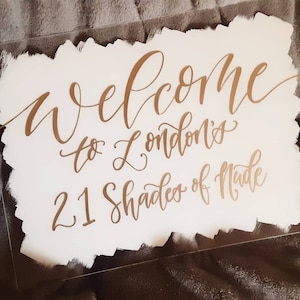 Welcome
to London's
21 Shades of Nude